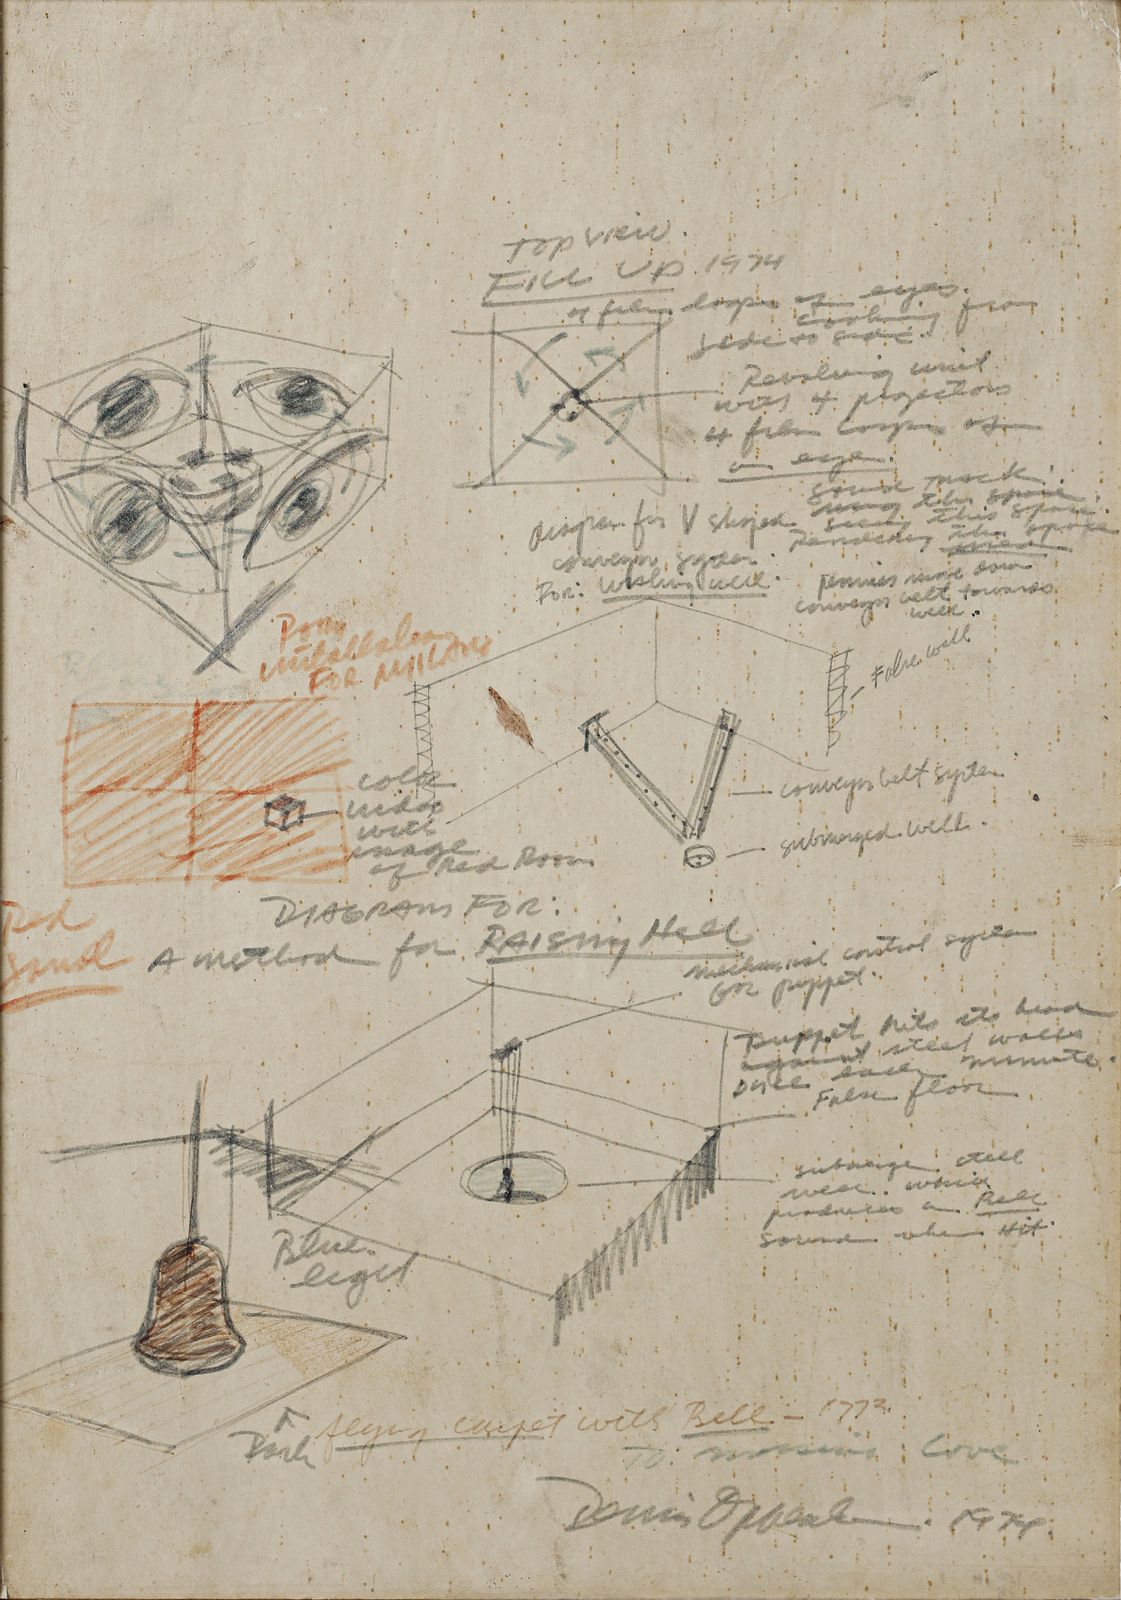 Top view.
Fill Up 1974
4 film loops of eyes.
looking from
side to side.
Revolving unit
with 4 projectors
4 film loops of
an eye.
Sound track:
using this space.
seeing this space.
this space
diagram for V shaped
conveyor system.
For: Wishing well.
pennies move down
conveyor belt towards
well.
False wall
conveyor belt system
submerged well.
Room
installation
FOR
color
video
with
image
of Red Room
Red
Sand
DIAGRAMS FOR:
A method for RAISing Hell
mechanical control system
for puppet.
Puppet hits its head
against steel walls
once each minute.
False floor
submerge steel
well. which
produces a Bell
sound when Hit.
Blue
light
Dark
flying carpet with Bell – 1973
To Love
Dennis Oppenheim. 1974.